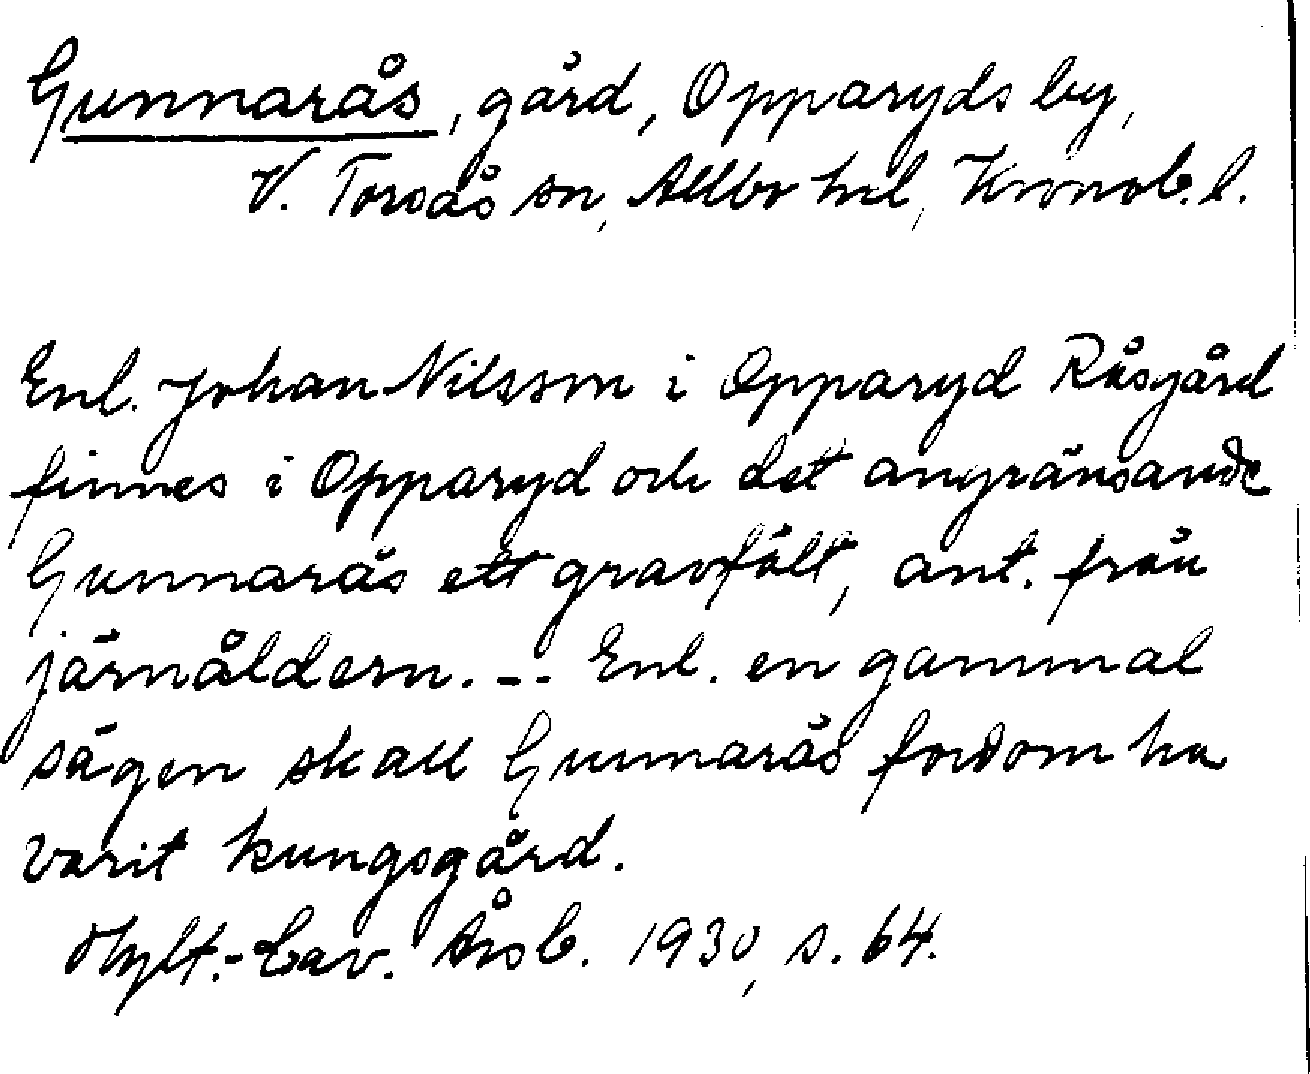 Gunnarås, gård, Opparyds by,
V. Torsås sn, Allbo hd, Kronob. l.
Enl. Johan Nilsson i Opparyd Råsgård
finnes i Opparyd och det angränsande
Gunnarås ett gravfält, ant. från
järnåldern. -- Enl. en gammal
sägen skall Gunnarås fordom ha
varit kungsgård.
Hylt.-Cav. Årsb. 1930, s. 64.